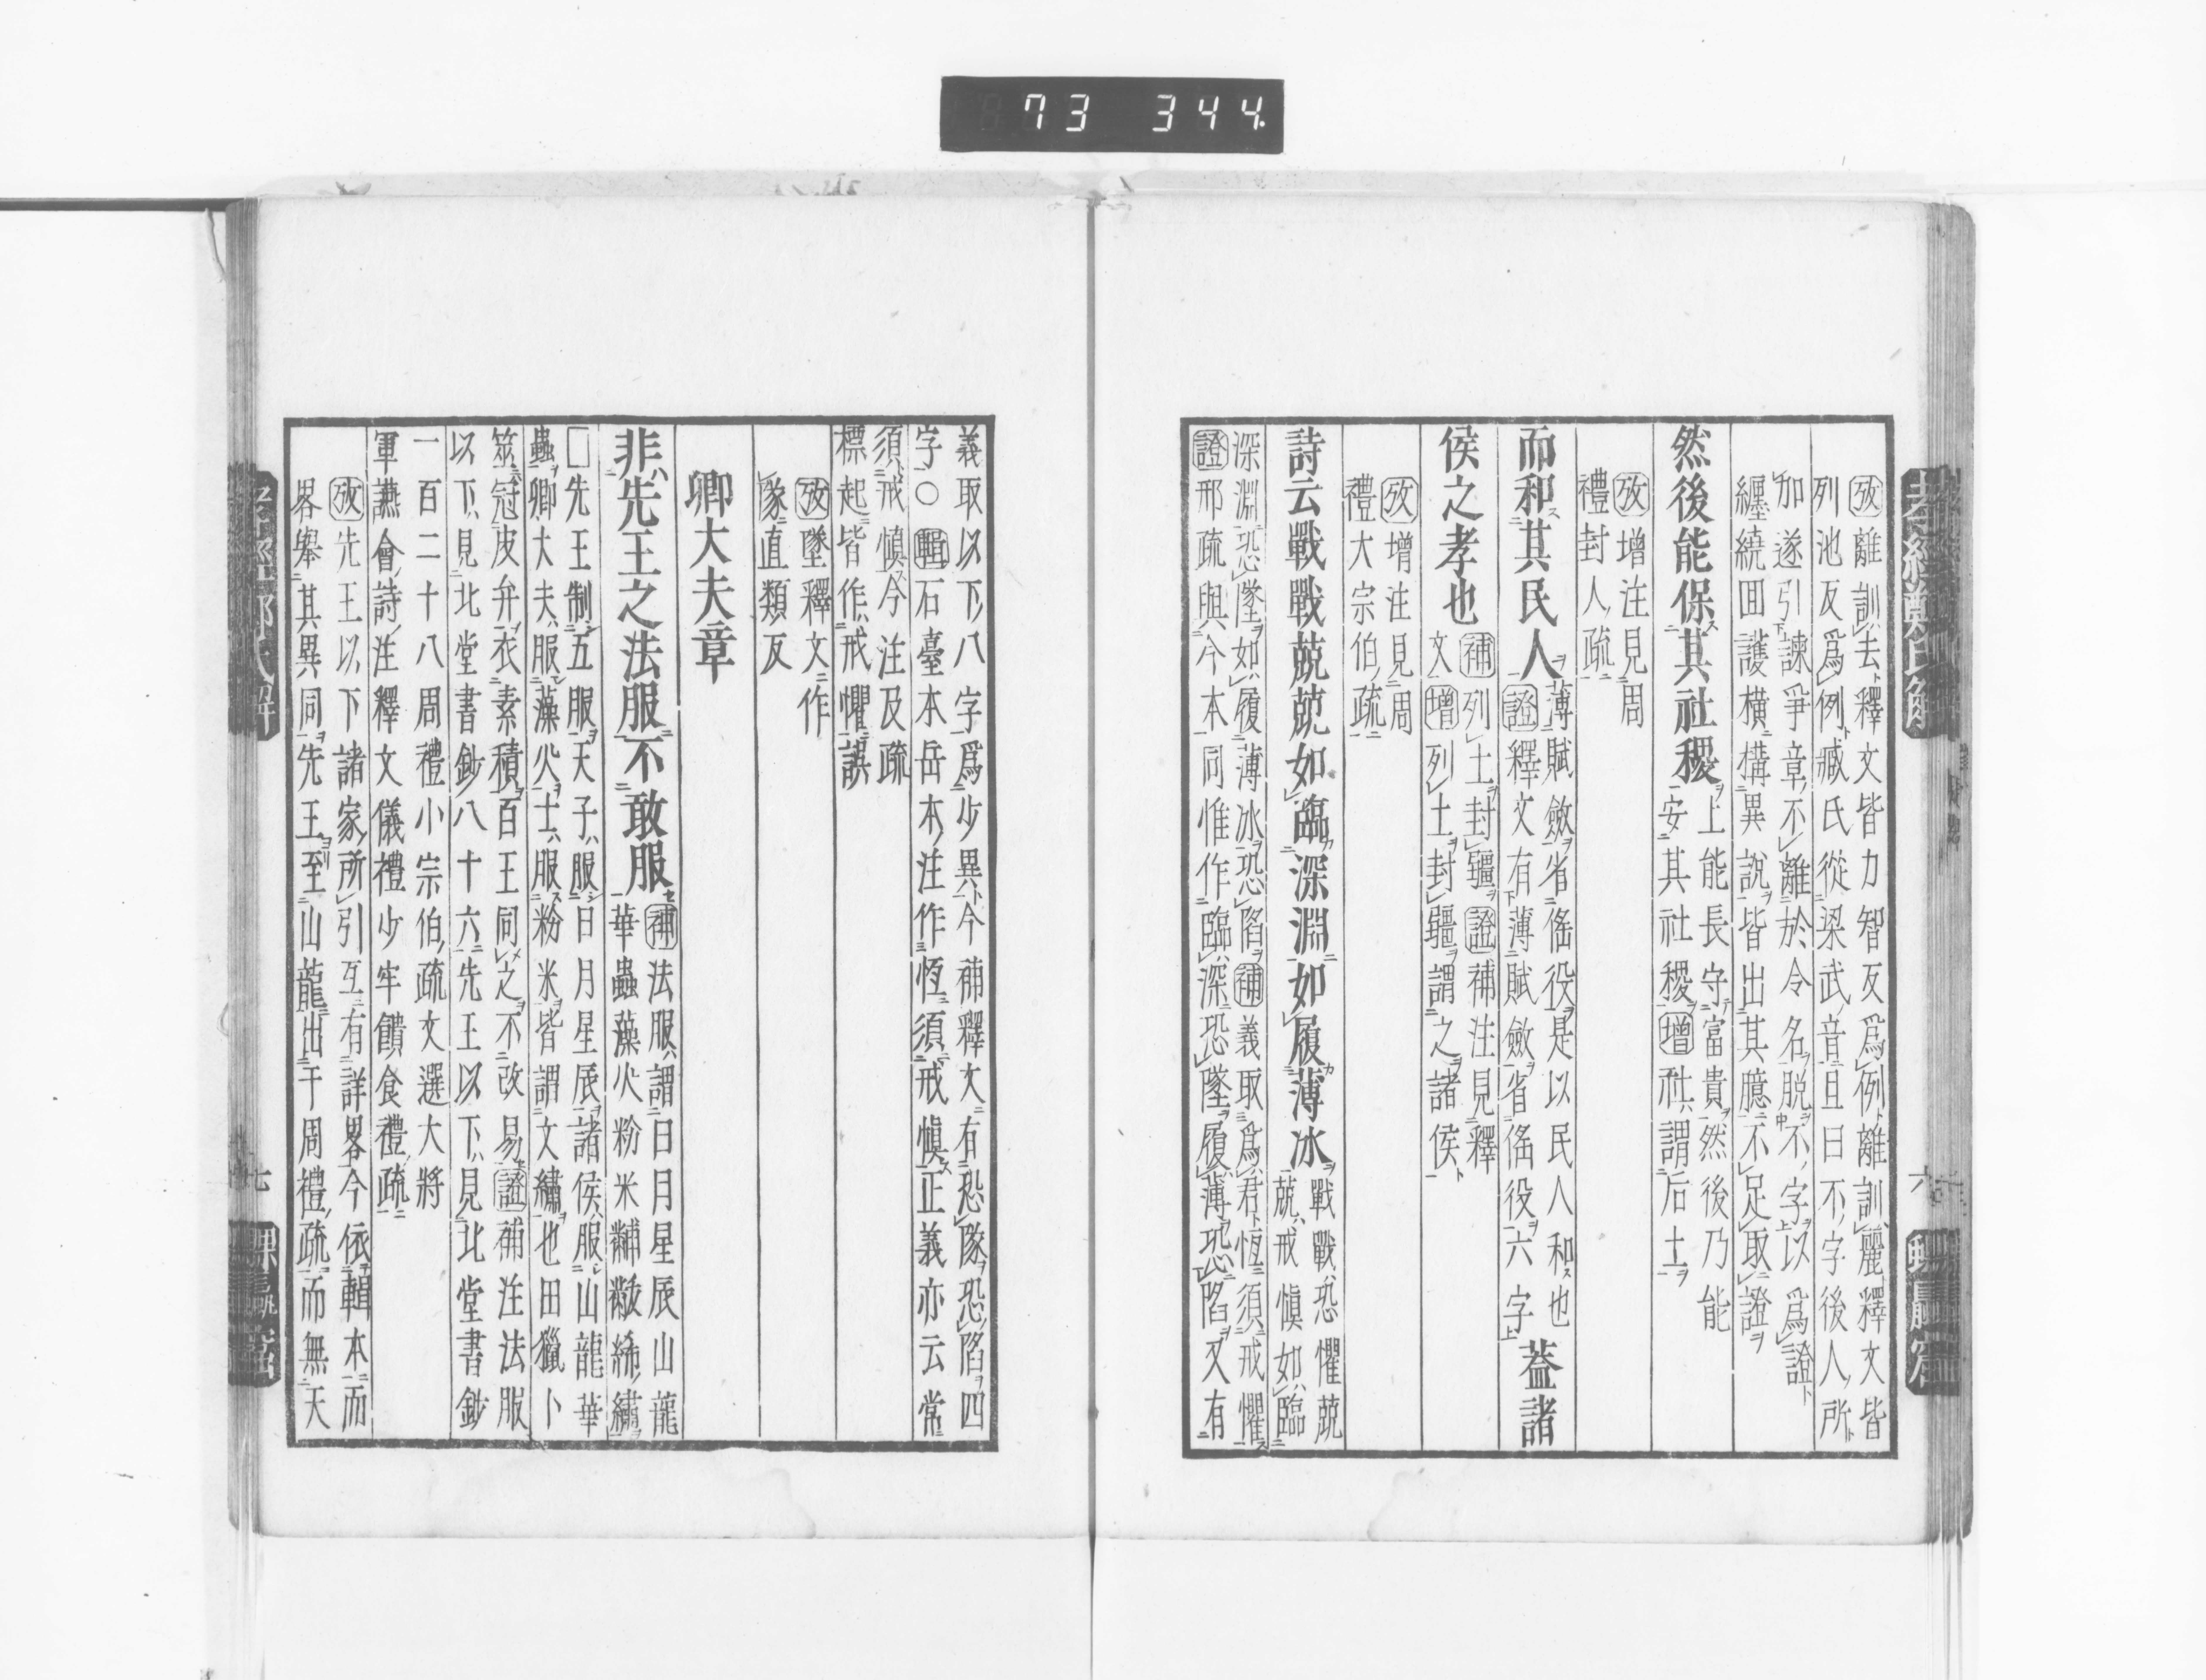 73 344.
攷離訓去釋文皆力智反爲例離訓麗釋文皆
列池反爲例臧氏從梁武音且曰不字後人所
加遂引諫爭章不離於令名脱不字以爲證
纏繞囬護橫構異說皆出其臆不足取證
然後能保其社稷
上能長守富貴然後乃能
安其社稷增社謂后土
攷增注見周
禮封人疏
而和其民人
薄賦斂省傜役是以民人和也
證釋文有薄賦斂省傜役六字
蓋諸
侯之孝也
補列土封疆證補注見釋
文增列土封疆謂之諸侯
攷增注見周
禮大宗伯疏
詩云戰戰兢兢如臨深淵如履薄冰
戰戰恐懼兢
兢戒愼如臨
深淵恐墜如履薄冰恐陷補義取爲君恆須戒懼
證邢疏與今本同惟作臨深恐墜履薄恐陷又有
孝經鄭氏解
六
義取以下八字爲少異今補釋文有恐隊恐陷四
字○輯石臺本岳本注作恆須戒愼正義亦云常
須戒愼今注及疏
標起皆作戒懼誤
攷墜釋文作
隊直類反
卿大夫章
非先王之法服不敢服
補法服謂日月星辰山龍
華蟲藻火粉米黼黻絺繡
□先王制五服天子服日月星辰諸侯服山龍華
蟲卿大夫服藻火士服粉米皆謂文繡也田獵卜
筮冠皮弁衣素積百王同之不改易證補注法服
以下見北堂書鈔八十六先王以下見北堂書鈔
一百二十八周禮小宗伯疏文選大將
軍讌會詩注釋文儀禮少牢饋食禮疏
攷先王以下諸家所引互有詳畧今依輯本而
畧舉其異同先王至山龍出于周禮疏而無天
七